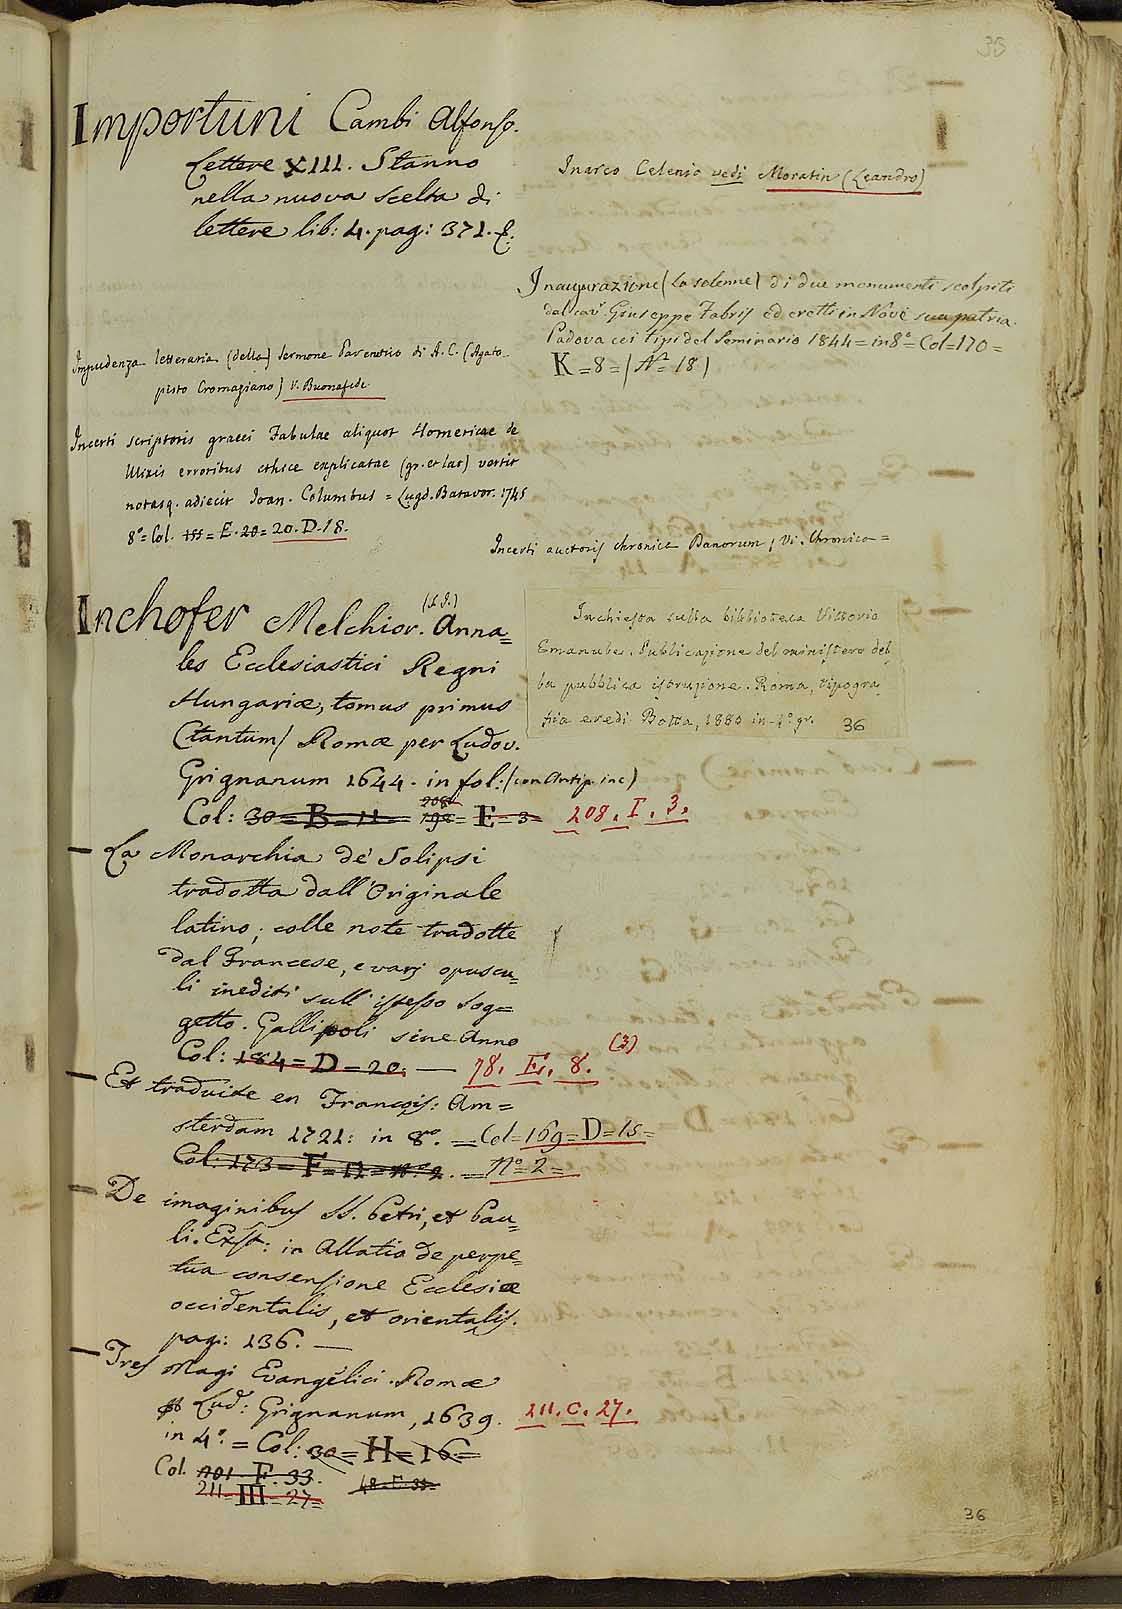 35
Importuni Cambi Alfonso.
Lettere XIII. Stanno
nella nuova scelta di
lettere lib: 4. pag: 371. E.
Impudenza letteraria (della) Sermone Parenetico di A. C. (Agato-
pisto Cromaziano) V. Buonafede
Incerti scriptoris graeci Fabulae aliquot Homericae de
Ulixis erroribus ethice explicatae (gr. et lat) vertit
notasq. adiecit Joan. Columbus = Lugd. Batavor. 1745
8º = Col. 155 = E. 20 = 20. D. 18.
Inchofer Melchior. (S. J.) Anna=
les Ecclesiastici Regni
Hungariæ, tomus primus
(tantum) Romæ per Ludov.
Grignanum 1644. in fol: (con Antip. inc)
Col: 30 = B = 11 = 198 = 208 = E = 3 = 208. I. 3.
La Monarchia de' Solipsi
tradotta dall'Originale
latino; colle note tradotte
dal Francese, e varj opuscu=
li inediti sull'istesso sog=
getto. Gallipoli sine Anno
Col: 184 = D = 20. — 78. E. 8. (3)
Et traduite en François: Am=
sterdam 1721: in 8º. = Col = 169 = D = 15 =
Col: 173 = F = 12 = nº 2. = Nº = 2 =
De imaginibus SS. Petri, et Pau=
li. Exst: in Allatio de perpe=
tua consensione Ecclesiæ
occidentalis, et orientalis.
pag: 136. —
Tres Magi Evangelici. Romæ
Lud: Grignanum, 1639. 211. C. 27.
in 4º. = Col: 30 = H = 16 =
Col. 201. F. 33. 48. E. 35
211 = III = 27 =
Inarco Celenio vedi Moratin (Leandro)
Inaugurazione (La solenne) di due monumenti scolpiti
dal cavr. Giuseppe Fabris ed eretti in Nove sua patria.
Padova coi tipi del Seminario 1844 = in 8º = Col = 170 =
K = 8 = (Nº = 18)
Incerti auctoris chronica Danorum, Vi. Chronica =
Inchiesta sulla biblioteca Vittorio
Emanuele. Pubblicazione del ministero del
la pubblica istruzione. Roma, tipogra
fia eredi Botta, 1880 in-4º gr. 36
36